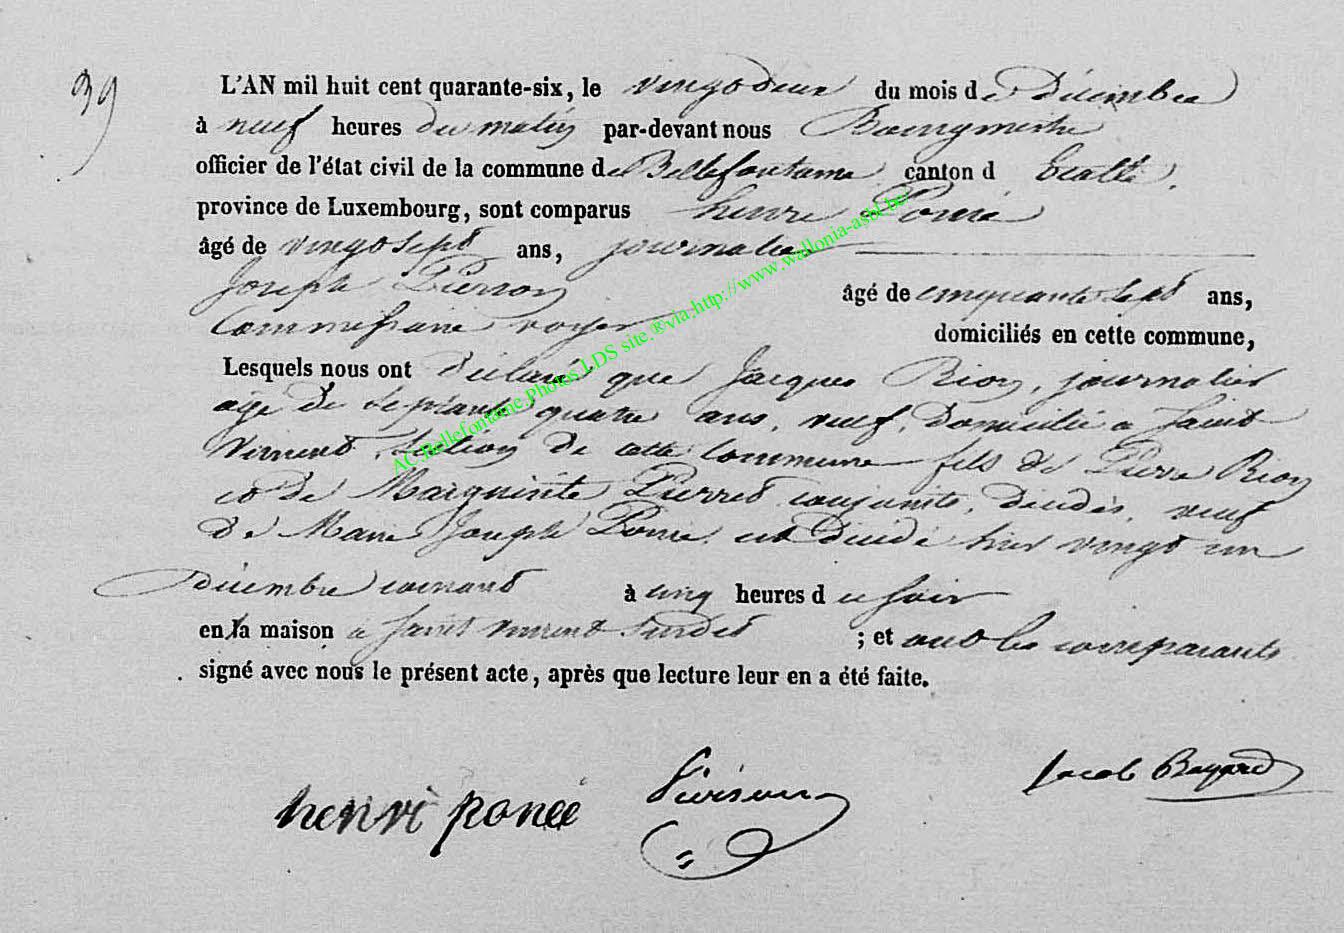 39
L'AN mil huit cent quarante-six, le vingt deux du mois de Décembre
à neuf heures du matin par-devant nous Bourgmestre
officier de l'état civil de la commune de Bellefontaine canton d'Etalle,
province de Luxembourg, sont comparus henri Poncé
âgé de vingt sept ans, journalier
Joseph Pierson âgé de cinquante sept ans,
Commissaire voyer domiciliés en cette commune,
Lesquels nous ont déclaré que Jacques Rion, journalier
agé de septante quatre ans, veuf domicilié a Saint
Vincent, section de cette commune fils de Pierre Rion
et de Marguerite Pierret conjoints, décédés, veuf
de Marie Joseph Poncé, est décédé hier vingt un
décembre courant à cinq heures du soir
en la maison a Saint Vincent susdit ; et ont les comparants
signé avec nous le présent acte, après que lecture leur en a été faite.
henri poncé Pierson Jacob Bayard
AC Bellefontaine Photos LDS site ® via http://www.wallonia-asbl.be/